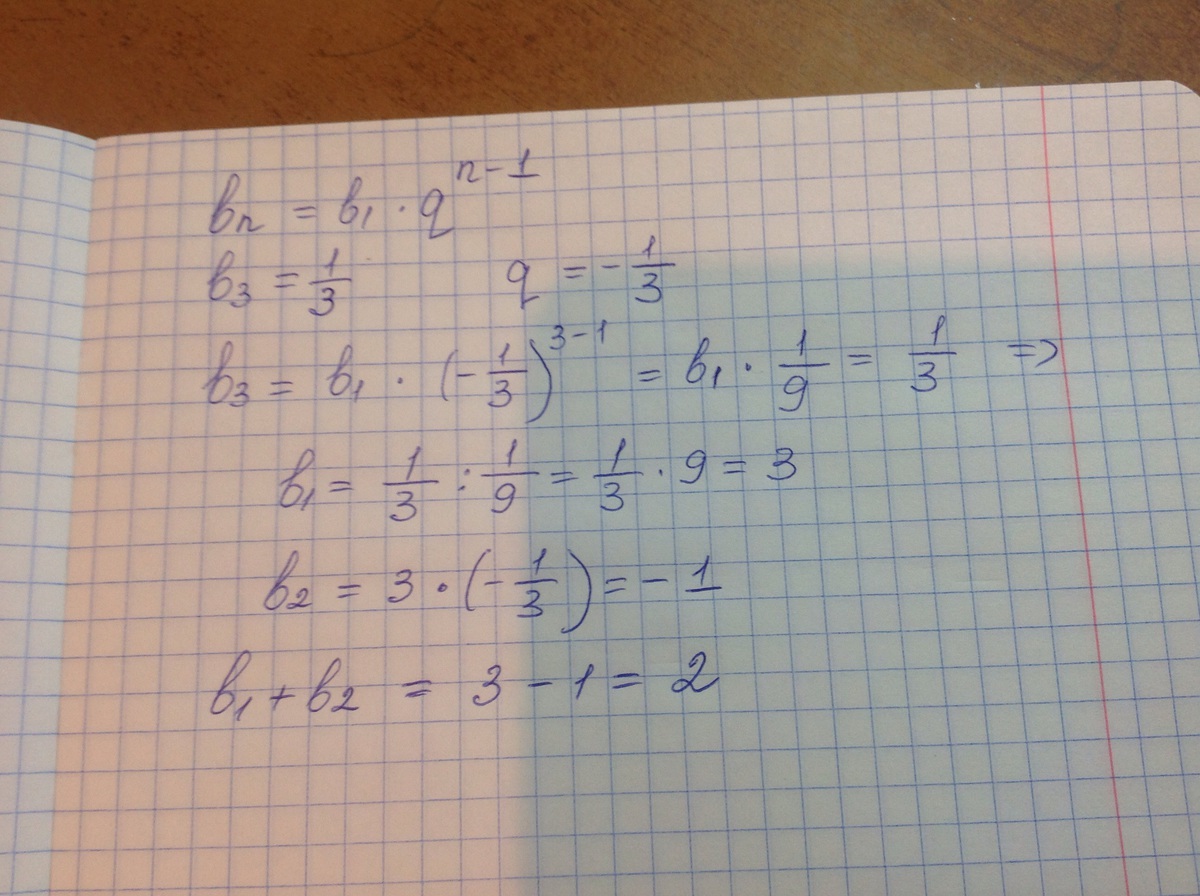 bₙ = b₁ · qⁿ⁻¹
b₃ = 1/3 q = -1/3
b₃ = b₁ · (-1/3)³⁻¹ = b₁ · 1/9 = 1/3 =>
b₁ = 1/3 : 1/9 = 1/3 · 9 = 3
b₂ = 3 · (-1/3) = - 1
b₁ + b₂ = 3 - 1 = 2